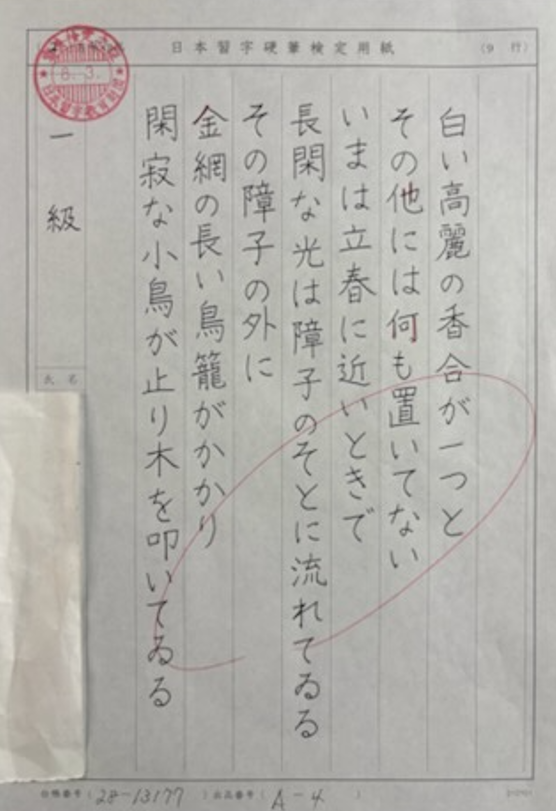 日本習字硬筆検定用紙
(9 行)
白い高麗の香合が一つと
その他には何も置いてない
いまは立春に近いときで
長閑な光は障子のそとに流れてゐる
その障子の外に
金網の長い鳥籠がかかり
閑寂な小鳥が止り木を叩いてゐる
一級
氏名
6.-3.
28-13177
A-4